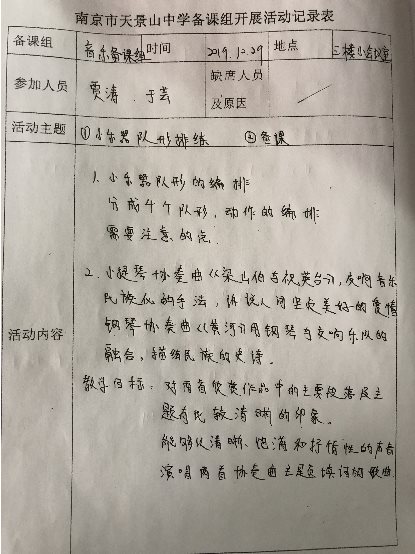 南京市天景山中学备课组开展活动记录表
备课组 音乐备课组 时间 2019.10.29 地点 三楼小会议室
参加人员 贾涛、于芸 缺席人员及原因
活动主题 ①小乐器队形排练 ②备课
活动内容
1. 小乐器队形的编排
分成4个队形,动作的编排
需要注意的点.
2. 小提琴协奏曲《梁山伯与祝英台》,交响音乐
民族化的手法,诉说人间坚定美好的爱情
钢琴协奏曲《黄河》用钢琴与交响乐队的
融合,描绘民族的史诗.
教学目标:对两首欣赏作品中的主要段落及主
题有比较清晰的印象.
能够以清晰、饱满和抒情性的声音
演唱两首协奏曲主题填词的歌曲